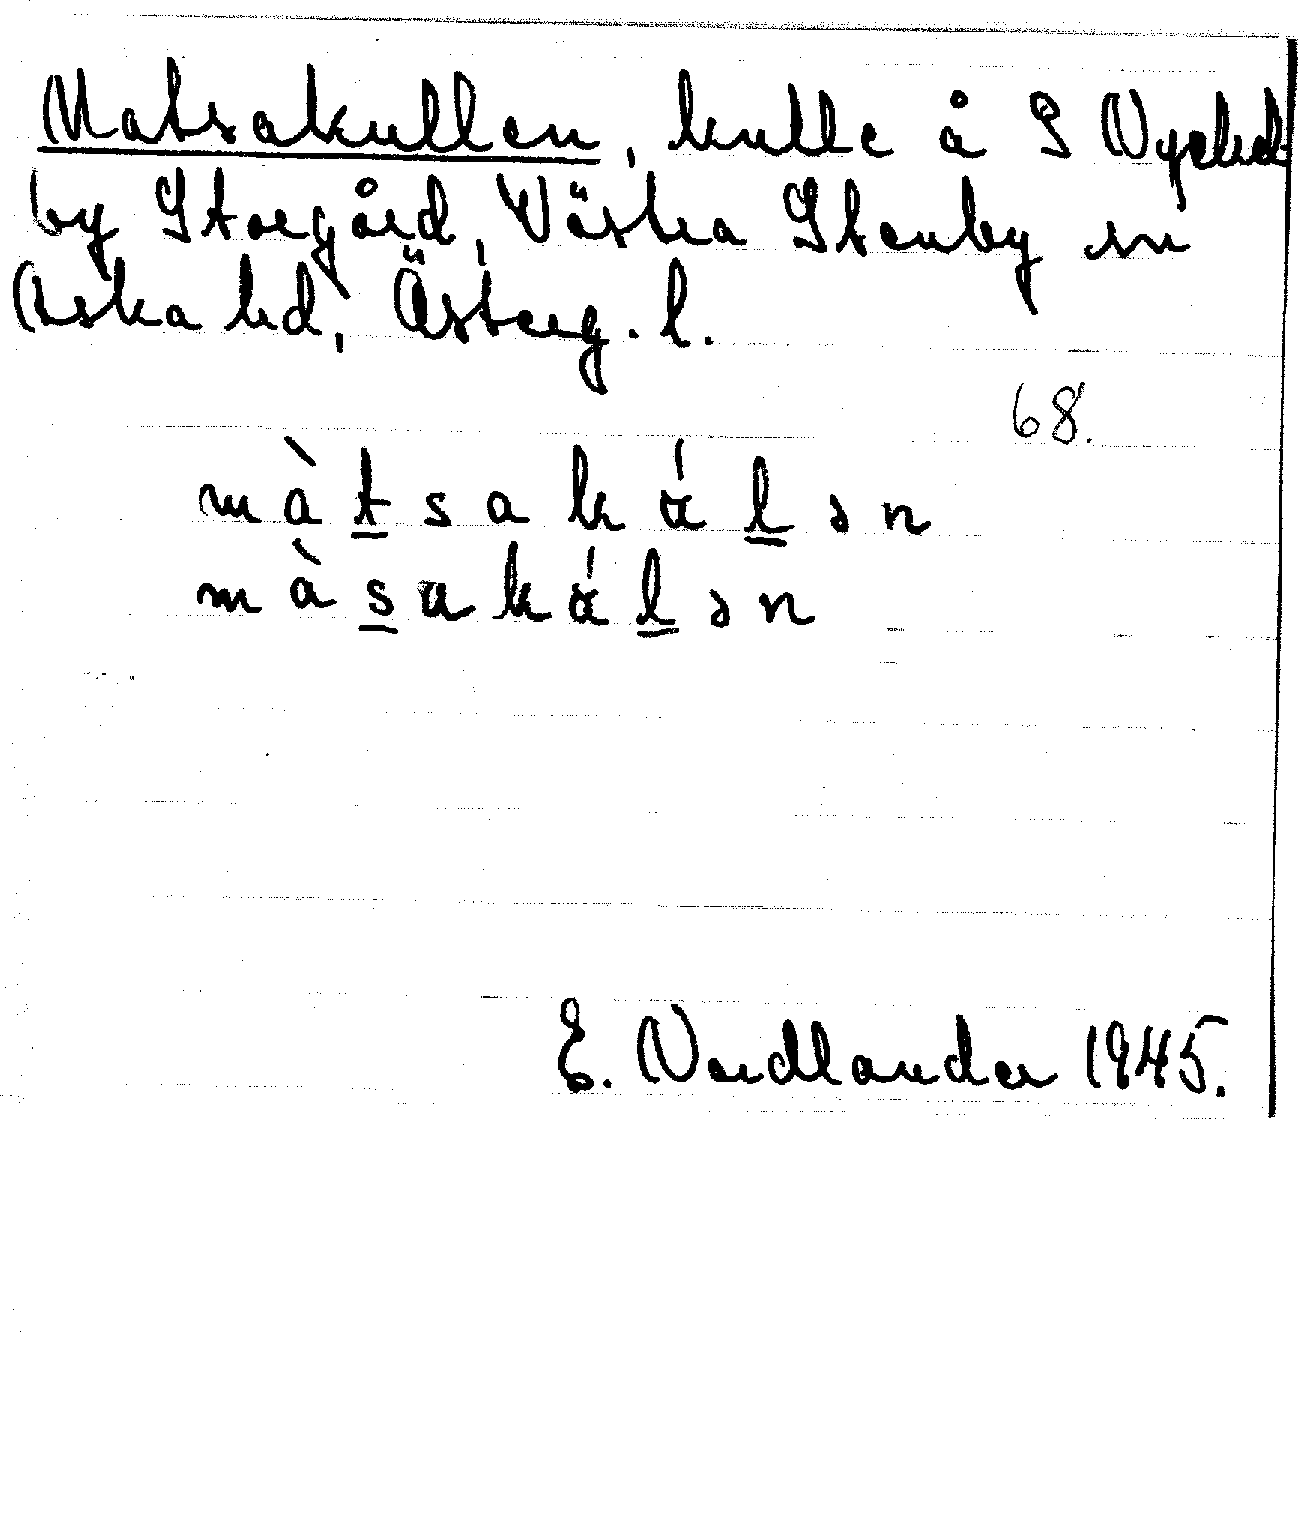 Matsakullen, kulle å S Nyckel-
by Storgård, Västra Stenby sn
Aska hd, Österg. l.
68.
màt̲sakάl̲ən
màs̲akάl̲ən
E. Nordlander 1945.